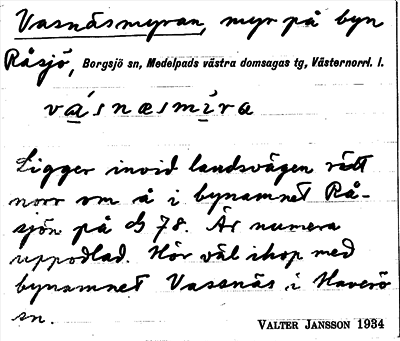 Vasnäsmyran, myr på byn
Råsjö, Borgsjö sn, Medelpads västra domsagas tg, Västernorrl. l.
vásnæsmìra
Ligger invid landsvägen rätt
norr om å i bynamnet Rå-
sjön på G 78. Är numera
uppodlad. Hör väl ihop med
bynamnet Vassnäs i Haverö
sn.
VALTER JANSSON 1934